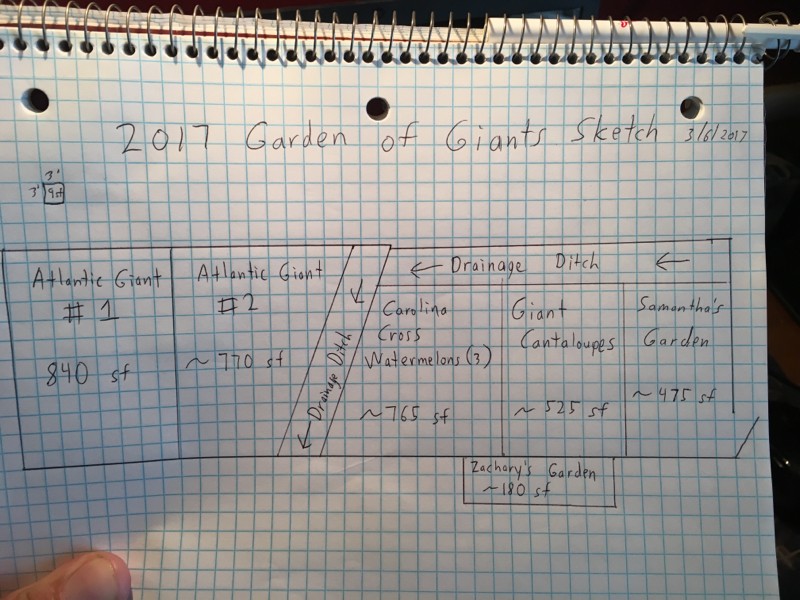 2017 Garden of Giants Sketch 3/6/2017
3'
3' 9sf
Atlantic Giant
# 1
840 sf
Atlantic Giant
#2
~ 770 sf
← Drainage Ditch ←
↓
Drainage Ditch
↓
Carolina
Cross
Watermelons (3)
~765 sf
Giant
Cantaloupes
~ 525 sf
Samantha's
Garden
~ 475 sf
Zachary's Garden
~180 sf